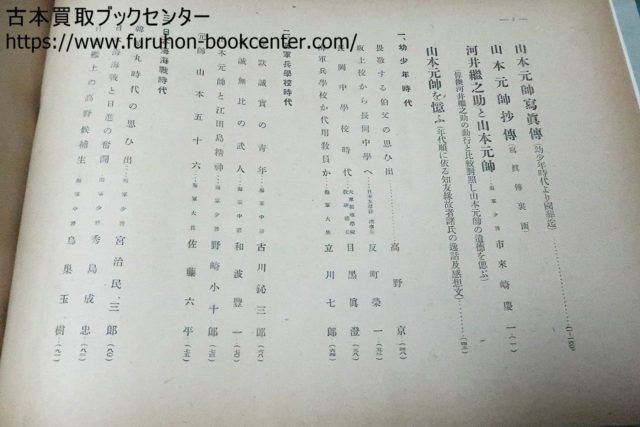 古本買取ブックセンター
https://www.furuhon-bookcenter.com/
山本元帥寫眞傳(幼少年時代より國葬迄)
山本元帥抄傳(寫眞傳裏面)……海軍少將 市來崎慶一(一)
河井繼之助と山本元帥
山本元帥を憶ふ(年代順に依る知友縁故者諸氏の逸話及感想文)
一、幼少年時代
畏敬する伯父の思ひ出……高野京
坂上校から長岡中學へ……反町榮一
長岡中學校時代……目黑眞澄
海軍兵學校か代用教員か…海軍大佐 立川七郎
二、海軍兵學校時代
默誠實の青年…海軍中將 古川鈊三郎
誠無比の武人…海軍中將 和波豐一
本元帥と江田島精神…海軍少將 野崎小十郎
元帥山本五十六…海軍大佐 佐藤六平
三、日本海海戰時代
丸時代の思ひ出…海軍少將 宮治民三郎
海海戰と日進の奮鬪…海軍少將 秀島成忠
艦上の高野候補生…海軍少將 鳥巢玉樹